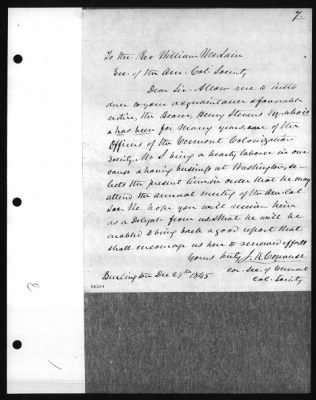 7.
To the Rev William McLain
Sec. of the Am. Col. Society
Dear Sir. Allow me to intro
duce to your acquaintance & favorable
notice, the Bearer, Henry Stevens Esq. who is
& has been for many years one of the
Officers of the Vermont Colonization
Society. Mr S being a hearty laborer in our
cause & having business at Washington, se-
lects the present time in order that he may
attend the annual meeting of the Am. Col
Soc. We hope you will receive him
as a Delegate from us & that he will be
enabled to bring back a good report that
shall encourage us here to renewed efforts
Yours truly J. K. Converse
Burlington Dec 29th 1845
cor. Sec. of Vermont
Col. Society